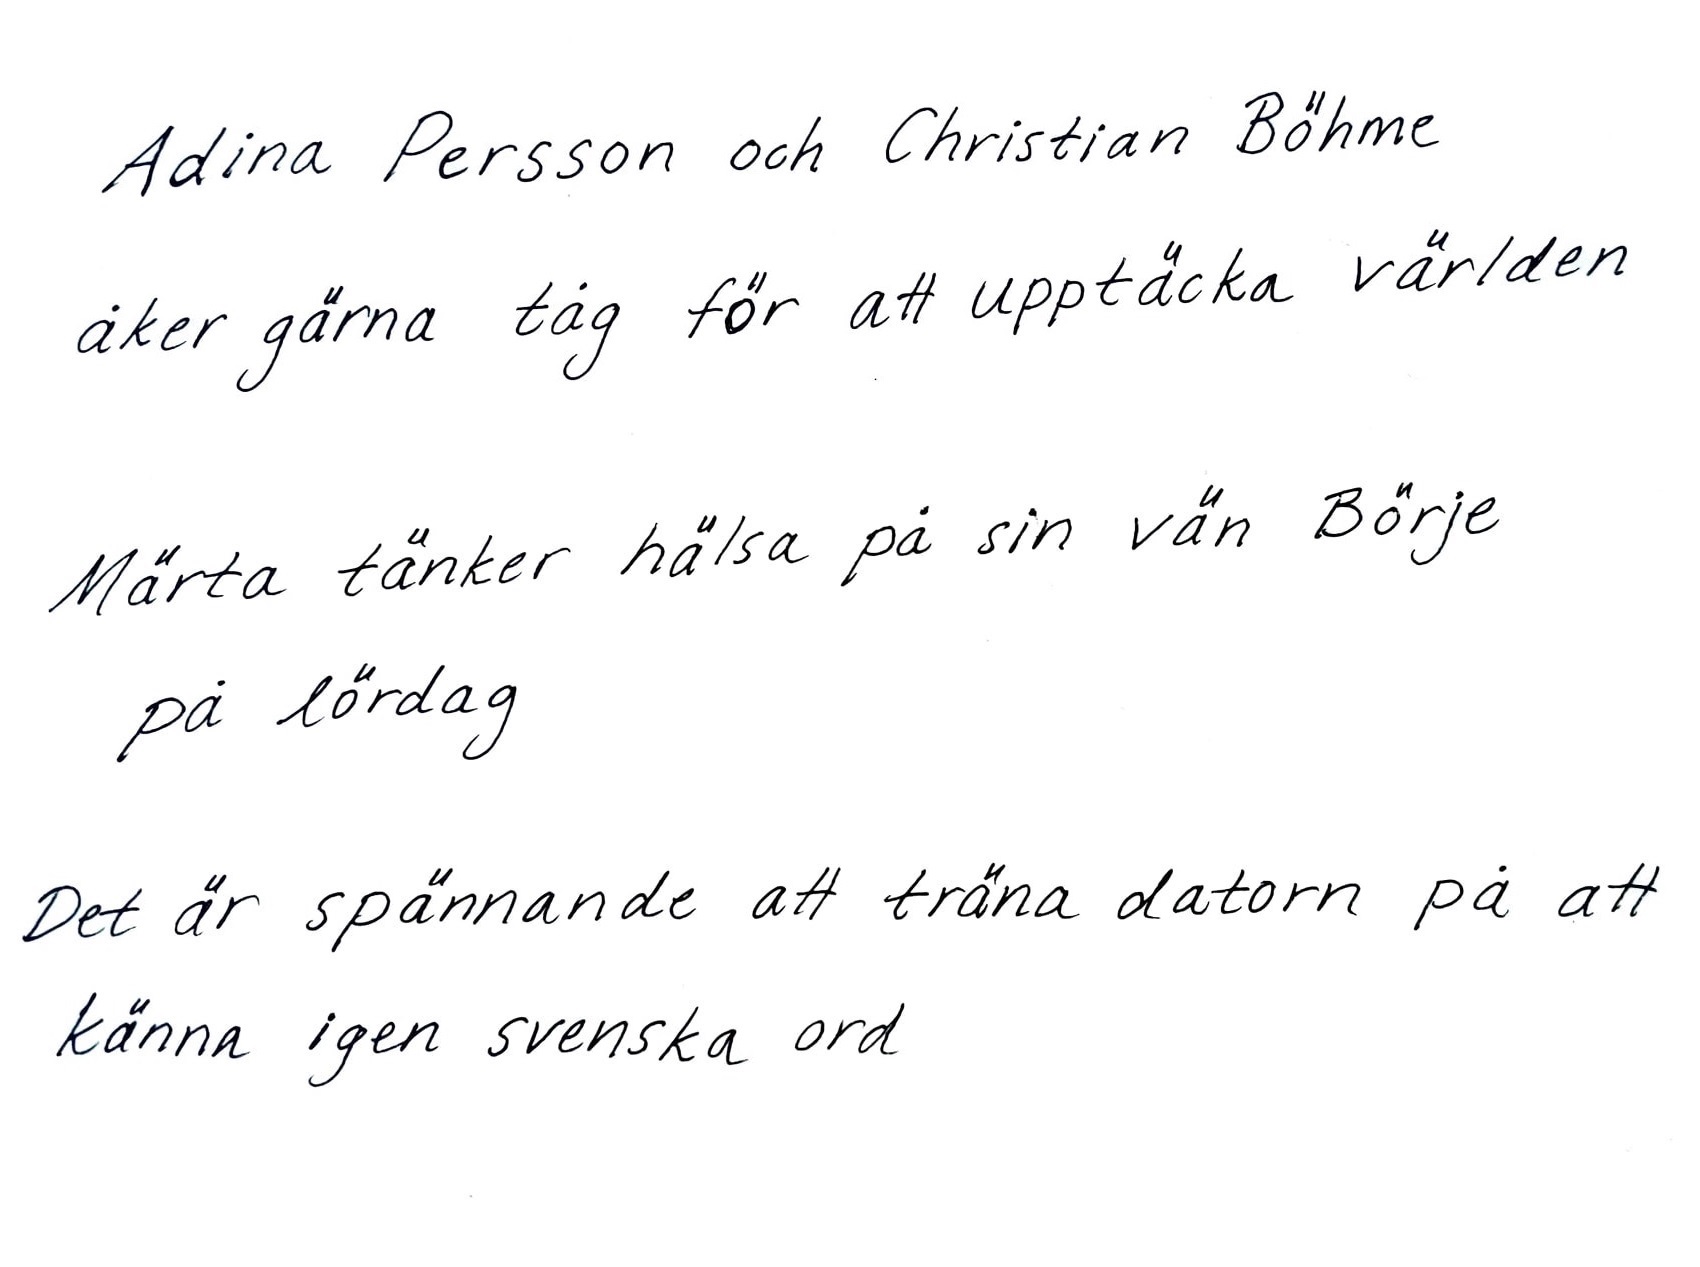 Adina Persson och Christian Böhme
åker gärna tåg för att upptäcka världen
Märta tänker hälsa på sin vän Börje
på lördag
Det är spännande att träna datorn på att
känna igen svenska ord